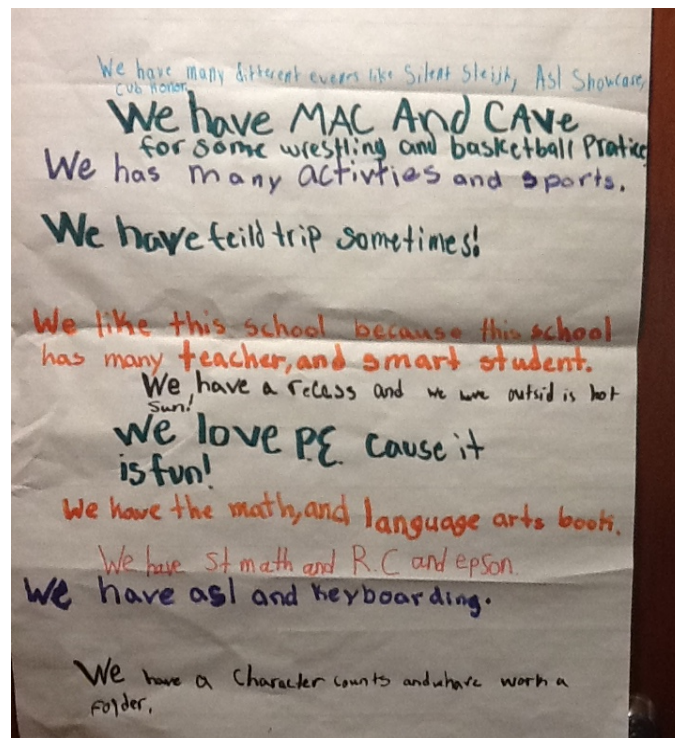 We have many different events like Silent Sleijh, Asl Showcase,
Cub honor,
We have MAC And CAVe
for some wrestling and basketball Pratice
We has many activties and sports.
We have feild trip sometimes!
We like this school because this school
has many teacher, and smart student.
We have a recess and we love outsid is hot
sun!
We love P.E. cause it
is fun!
We have the math, and language arts book.
We have St math and R.C and epson.
We have asl and keyboarding.
We have a Character counts and have work a
Folder.